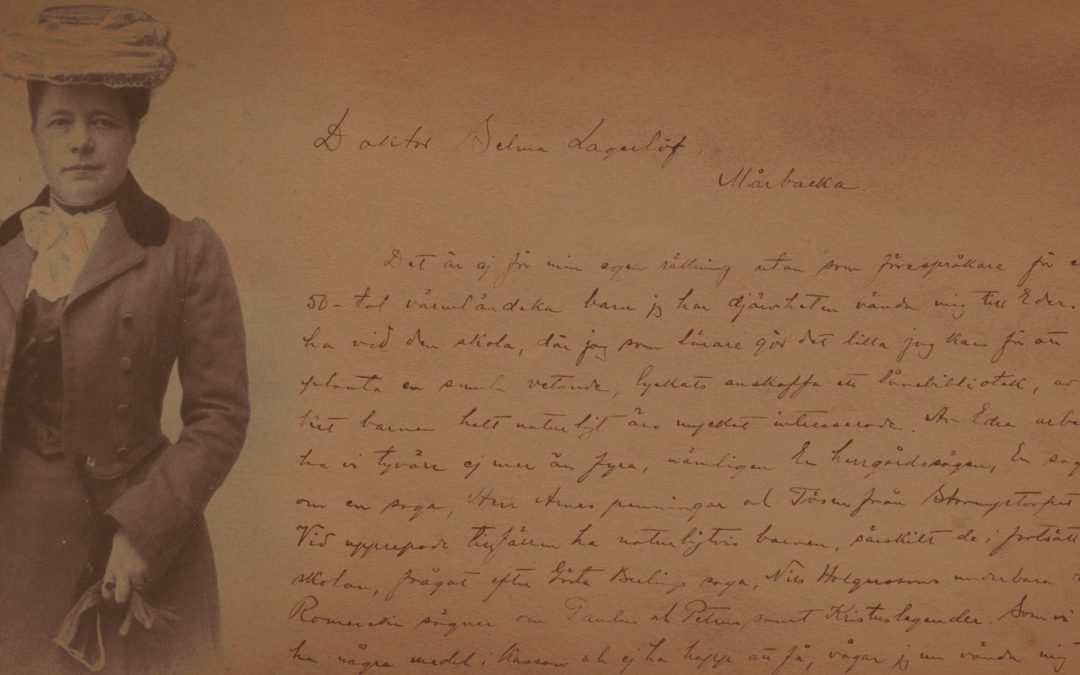 Doktor Selma Lagerlöf,
Mårbacka.
Det är ej för min egen räkning, utan som förespråkare för e
50-tal värmländska barn jag har djärfheten vända mig till Eder.
ha vid den skola, där jag som lärare gör det lilla jag kan för att
planta en smula vetande, lyckats anskaffa ett lånebibliotek, av
ket barnen helt naturligt äro mycket intresserade. Av Edra arbe
ha vi tyvärr ej mer än fyra, nämligen En herrgårdssägen, En sag
om en saga, Herr Arnes penningar och Tösen från Stormyrtorpet
Vid upprepade tillfällen ha naturligtvis barnen, särskilt de i fortsätt
skolan, frågat efter Gösta Berlings saga, Nils Holgerssons underbara
Romerska sägner om Paulus och Petrus samt Kristuslegender. Som vi
ha några medel i kassan och ej ha hopp att få, vågar jag nu vända mig